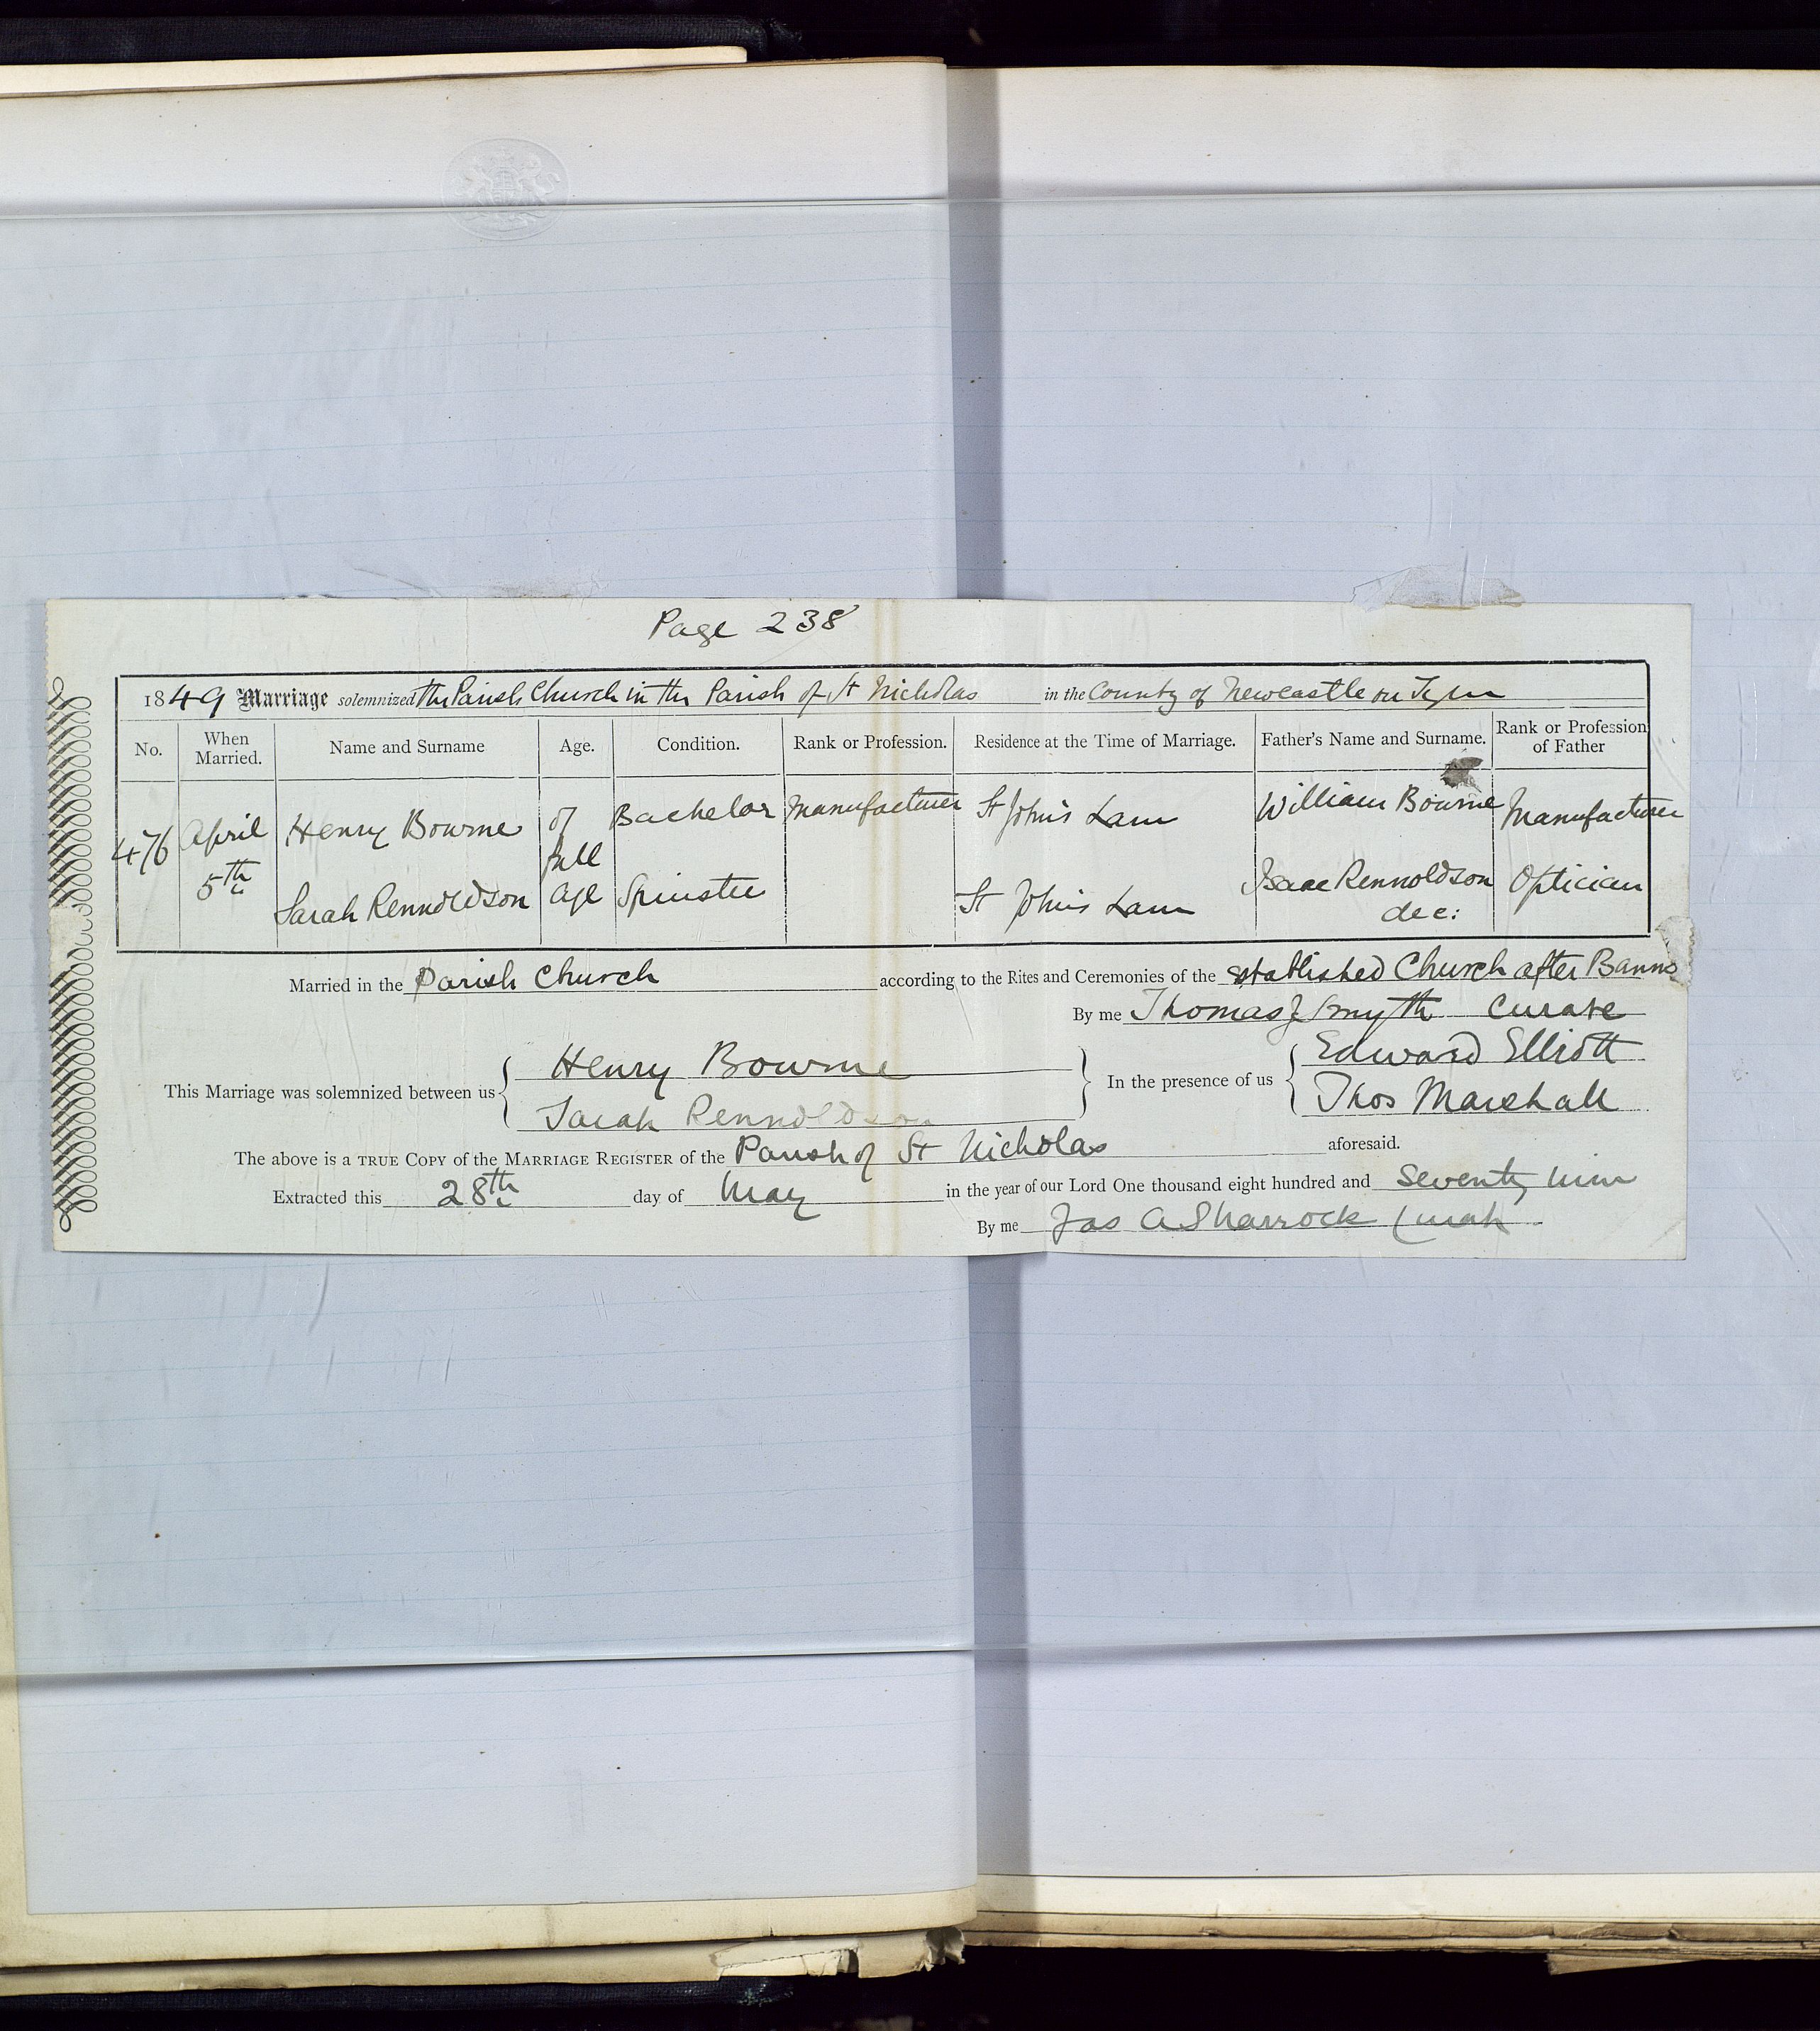 Page 238
1849 Marriage solemnized the Parish Church in the Parish of St Nicholas in the County of Newcastle on Tyne
No. When Married. Name and Surname Age. Condition. Rank or Profession. Residence at the Time of Marriage. Father's Name and Surname. Rank or Profession of Father
476 April 5th Henry Bourne of full age Bachelor Manufacturer St Johns Lane William Bourne Manufacturer
Sarah Rennoldson Spinster St Johns Lane Isaac Rennoldson dec: Optician
Married in the Parish Church according to the Rites and Ceremonies of the Established Church after Banns
By me Thomas J Smyth Curate
This Marriage was solemnized between us { Henry Bourne } In the presence of us { Edward Elliott
Sarah Rennoldson Thos Marshall
The above is a TRUE COPY of the MARRIAGE REGISTER of the Parish of St Nicholas aforesaid.
Extracted this 28th day of May in the year of our Lord One thousand eight hundred and seventy nine
By me Jas A Sharrock Curate